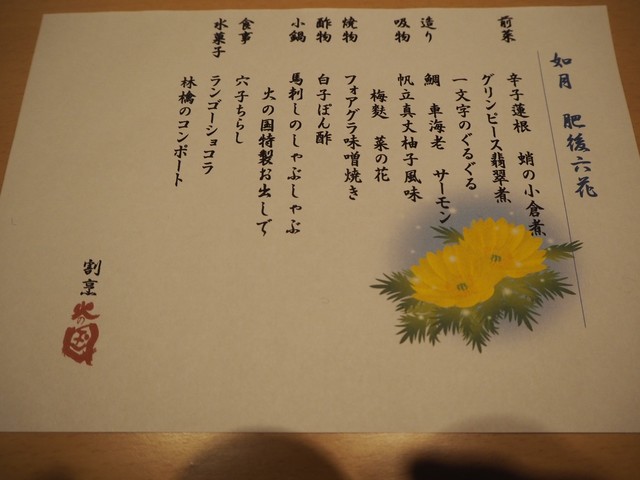 如月 肥後六花
前菜 辛子蓮根 蛸の小倉煮
グリンピース翡翠煮
一文字のぐるぐる
造り 鯛 車海老 サーモン
吸物 帆立真丈柚子風味
梅麩 菜の花
焼物 フォアグラ味噌焼き
酢物 白子ぽん酢
小鍋 馬刺しのしゃぶしゃぶ
火の国特製お出しで
食事 穴子ちらし
水菓子 ランゴーショコラ
林檎のコンポート
割烹
火の国